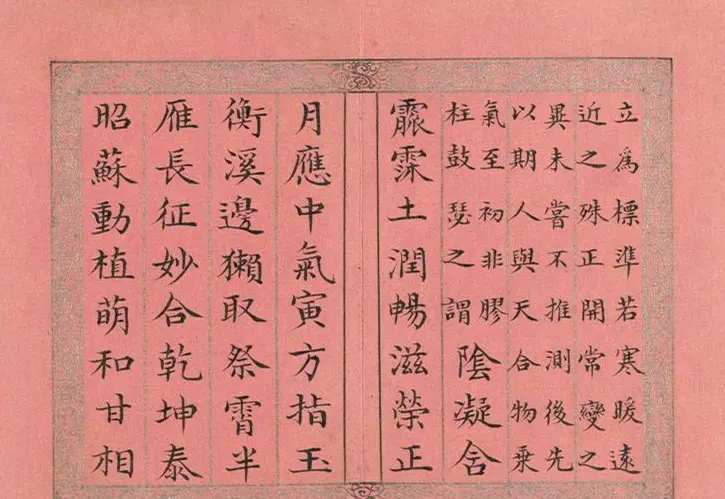 立為標準若寒暖遠
近之殊正開常變之
異未嘗不推測後先
以期人與天合物乘
氣至初非膠
柱鼓瑟之謂
陰凝含
霢霂土潤暢滋榮正
月應中氣寅方指玉
衡溪邊獺取祭霄半
雁長征妙合乾坤泰
昭蘇動植萌和甘相